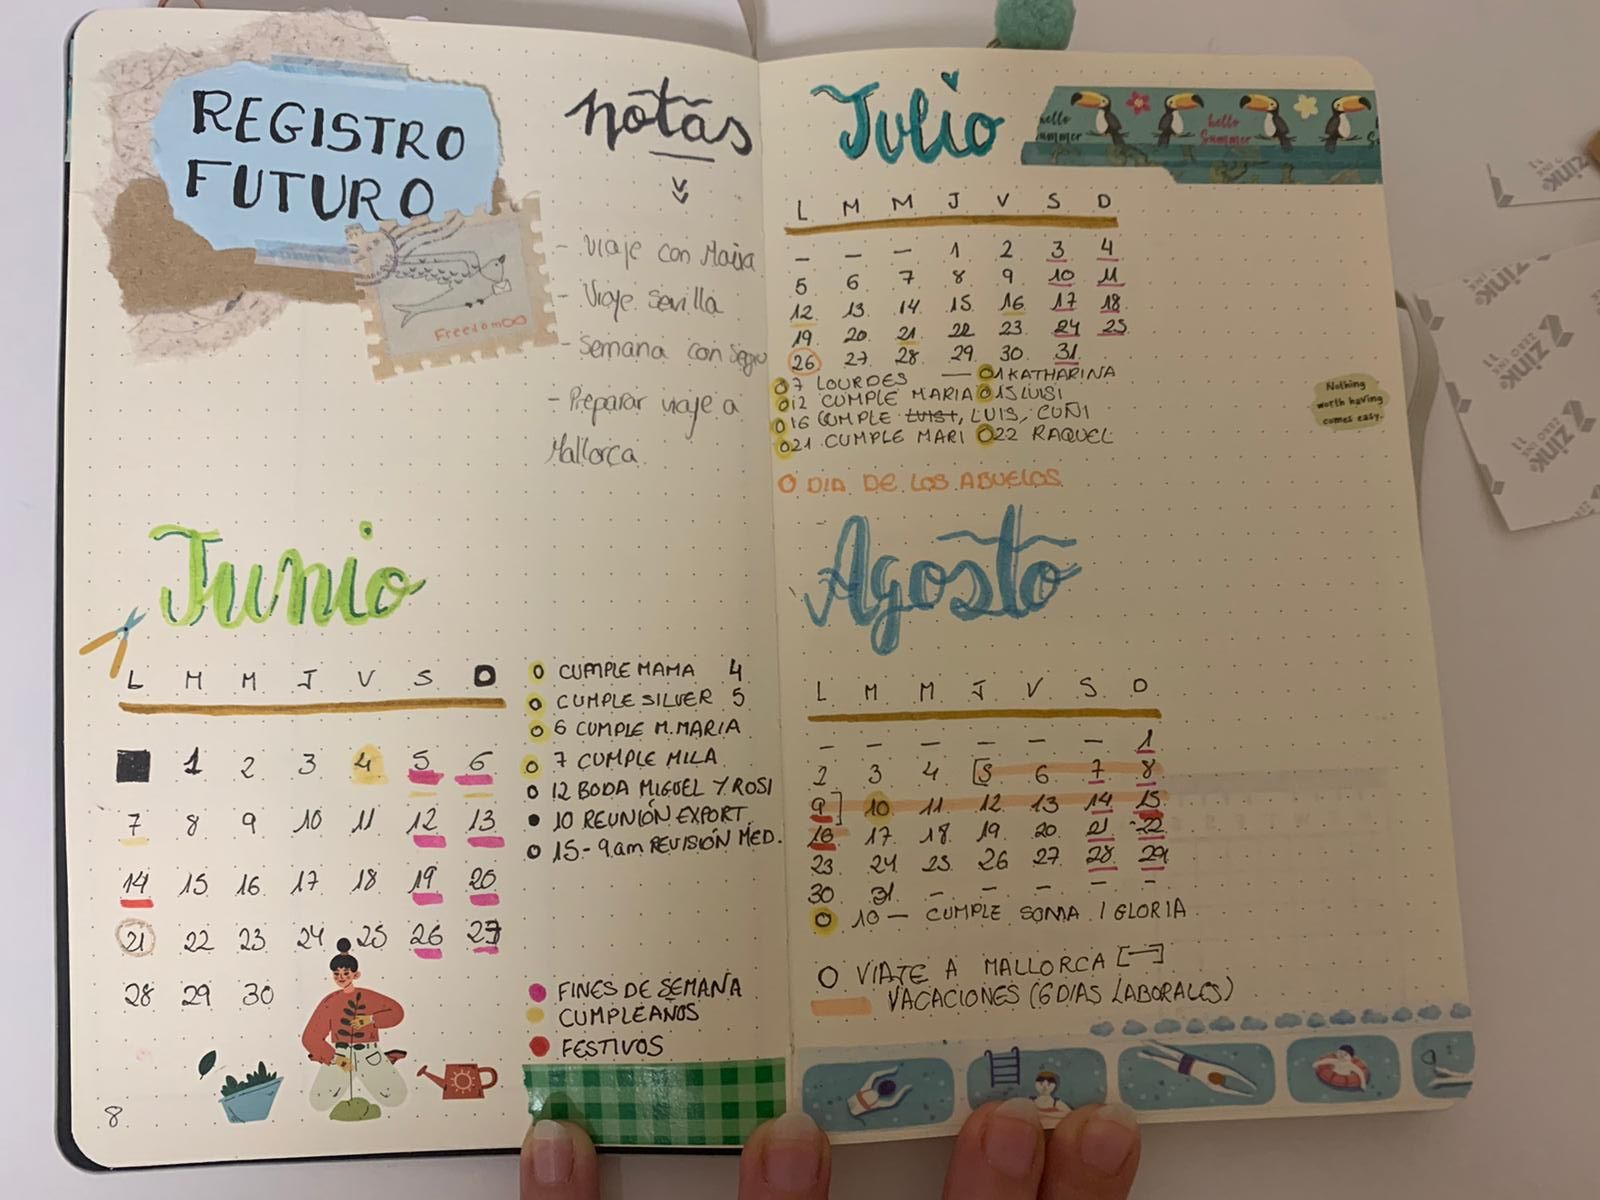 REGISTRO
FUTURO
Freedom
notas
- Viaje con Maixa
- Viaje Sevilla
- Semana con
- Preparar viaje a
Mallorca
Junio
L M M J V S D
1 2 3 4 5 6
7 8 9 10 11 12 13
14 15 16 17 18 19 20
21 22 23 24 25 26 27
28 29 30
O CUMPLE MAMA 4
O CUMPLE SILVER 5
O 6 CUMPLE M.MARIA
O 7 CUMPLE MILA
O 12 BODA MIGUEL Y ROSI
● 10 REUNIÓN EXPORT.
O 15-9am REVISIÓN MED.
● FINES DE SEMANA
● CUMPLEAÑOS
● FESTIVOS
8
Julio
hello
summer
hello
Summer
L M M J V S D
- - - 1 2 3 4
5 6 7 8 9 10 11
12 13 14 15 16 17 18
19 20 21 22 23 24 25
26 27 28 29 30 31
O7 LOURDES — O1 KATHARINA
O12 CUMPLE MARIA O15 LUISI
O16 CUMPLE LUISI, LUIS, CUÑI
O21 CUMPLE MARI O22 RAQUEL
O DIA DE LOS ABUELOS
Nothing
worth having
comes easy.
Agosto
L M M J V S D
- - - - - - 1
2 3 4 [5 6 7 8
9] 10 11 12 13 14 15
16 17 18 19 20 21 22
23 24 25 26 27 28 29
30 31 - - - - -
O 10 — CUMPLE SONIA / GLORIA
O VIAJE A MALLORCA [—]
VACACIONES (6 DIAS LABORALES)
ZINK
ZINK
ZINK
ZERO INK